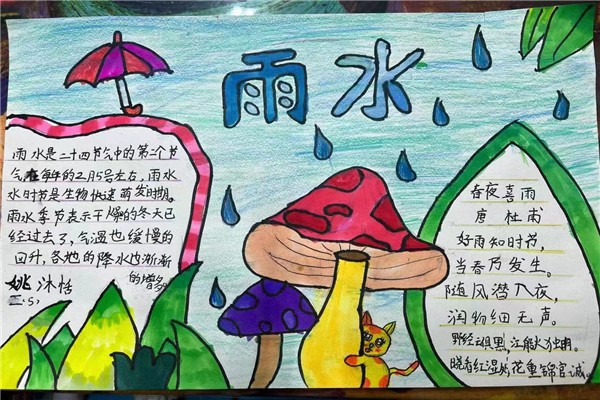 雨水
雨水是二十四节气中的第二个节
气,在每年的2月5号左右,雨水
水时节是生物快速萌发时期。
雨水季节表示干燥的冬天已
经过去了,气温也缓慢的
回升,各地的降水也渐渐
的增多
姚沐恬
二.5)
春夜喜雨
唐 杜甫
好雨知时节,
当春乃发生。
随风潜入夜,
润物细无声。
野径云俱黑,江船火独明。
晓看红湿处,花重锦官诚。